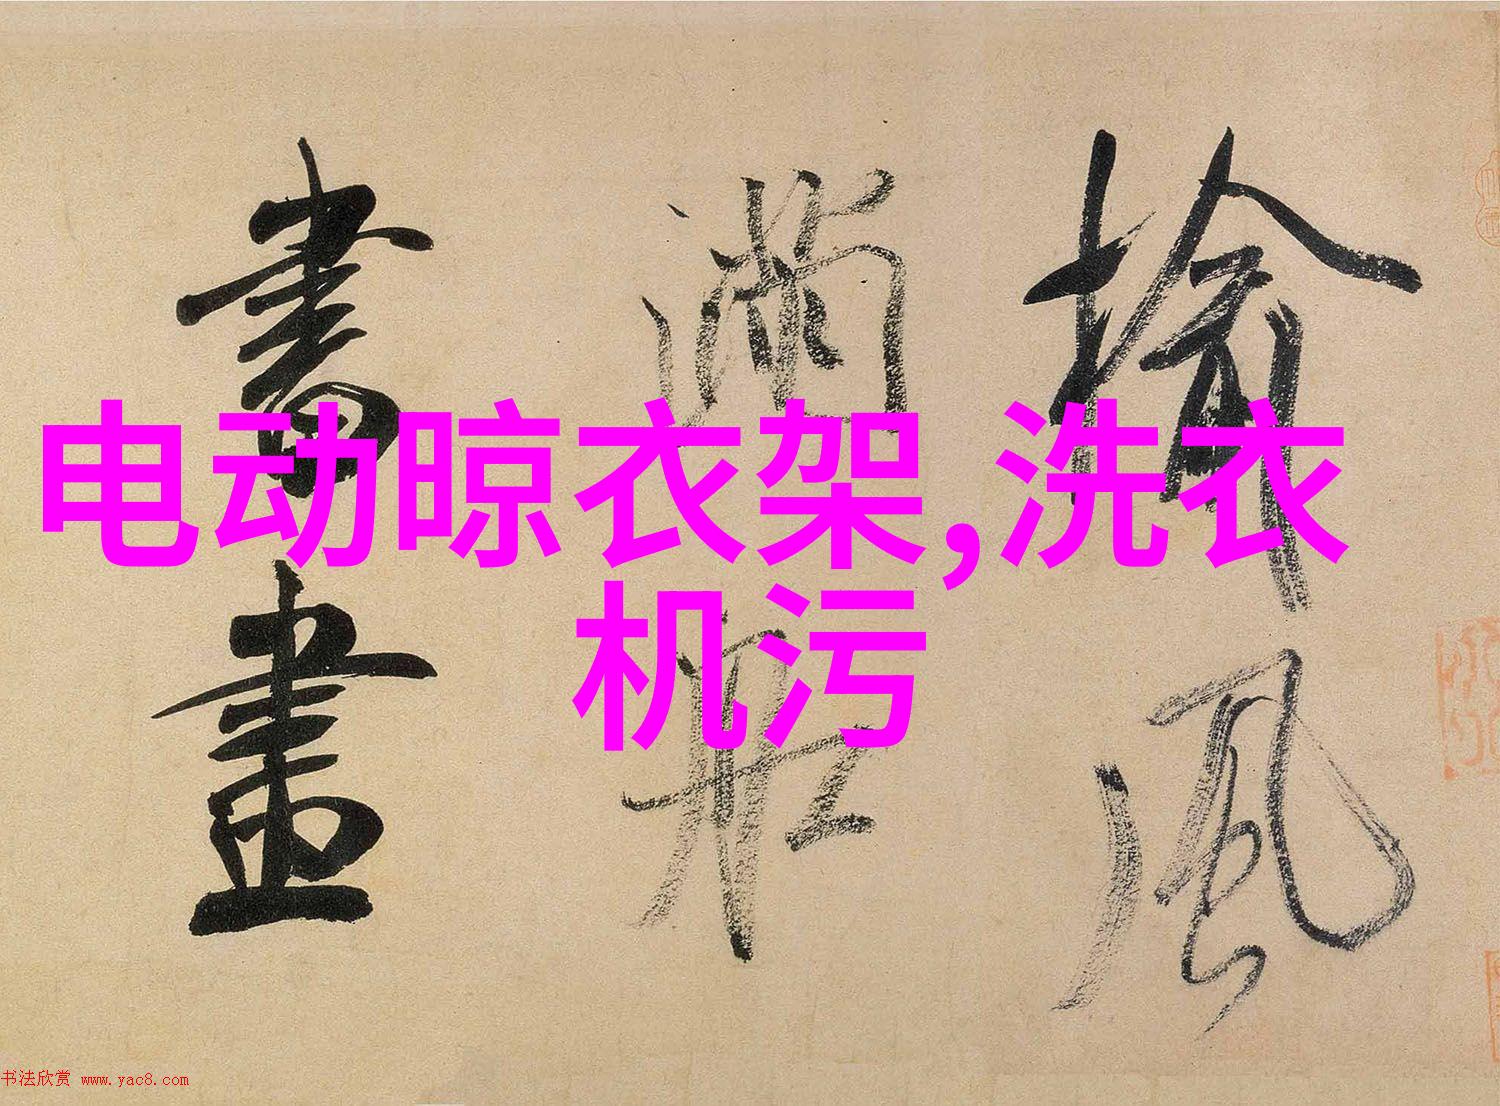 电动晾衣架,洗衣
机污
榆風
滿舡
書畫
书法欣赏 www.yac8.com